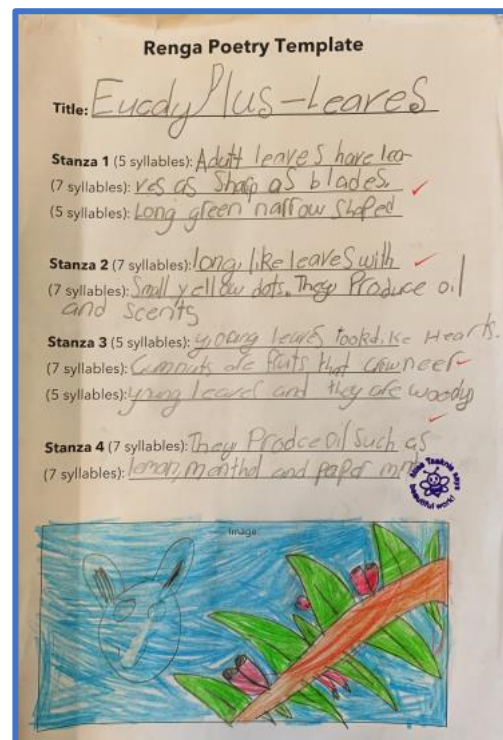 Renga Poetry Template
Title: Eucdyplus-Leaves
Stanza 1 (5 syllables): Adult leaves have lea-
(7 syllables): ves as Sharp as blades.
(5 syllables): Long green narrow shaped
Stanza 2 (7 syllables): long, like leaves with
(7 syllables): Small yellow dots. They Produce oil
and scents
Stanza 3 (5 syllables): young leaves look like Hearts.
(7 syllables): Gumnuts are fruits that
(5 syllables): young leaves and they are woody
Stanza 4 (7 syllables): They Prodce oil such as
(7 syllables): lemon, menthol and paper mint
Miss Tsaknis says
beautiful work!
Image: